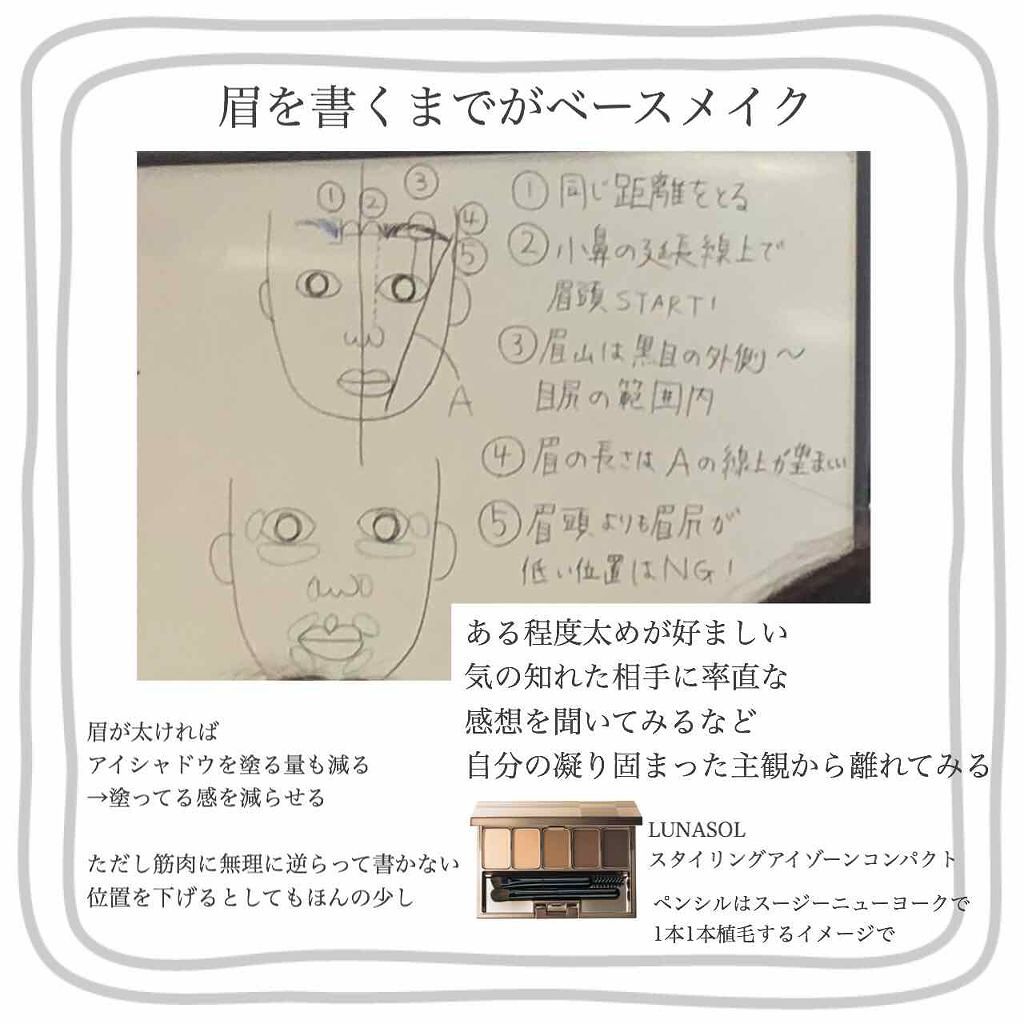 眉を書くまでがベースメイク
① ② ③ ④ ⑤
A
① 同じ距離をとる
② 小鼻の延長線上で
眉頭START!
③ 眉山は黒目の外側〜
目尻の範囲内
④ 眉の長さはAの線上が望ましい
⑤ 眉頭よりも眉尻が
低い位置はNG!
ある程度太めが好ましい
気の知れた相手に率直な
感想を聞いてみるなど
自分の凝り固まった主観から離れてみる
眉が太ければ
アイシャドウを塗る量も減る
→塗ってる感を減らせる
ただし筋肉に無理に逆らって書かない
位置を下げるとしてもほんの少し
LUNASOL
スタイリングアイゾーンコンパクト
ペンシルはスージーニューヨークで
1本1本植毛するイメージで